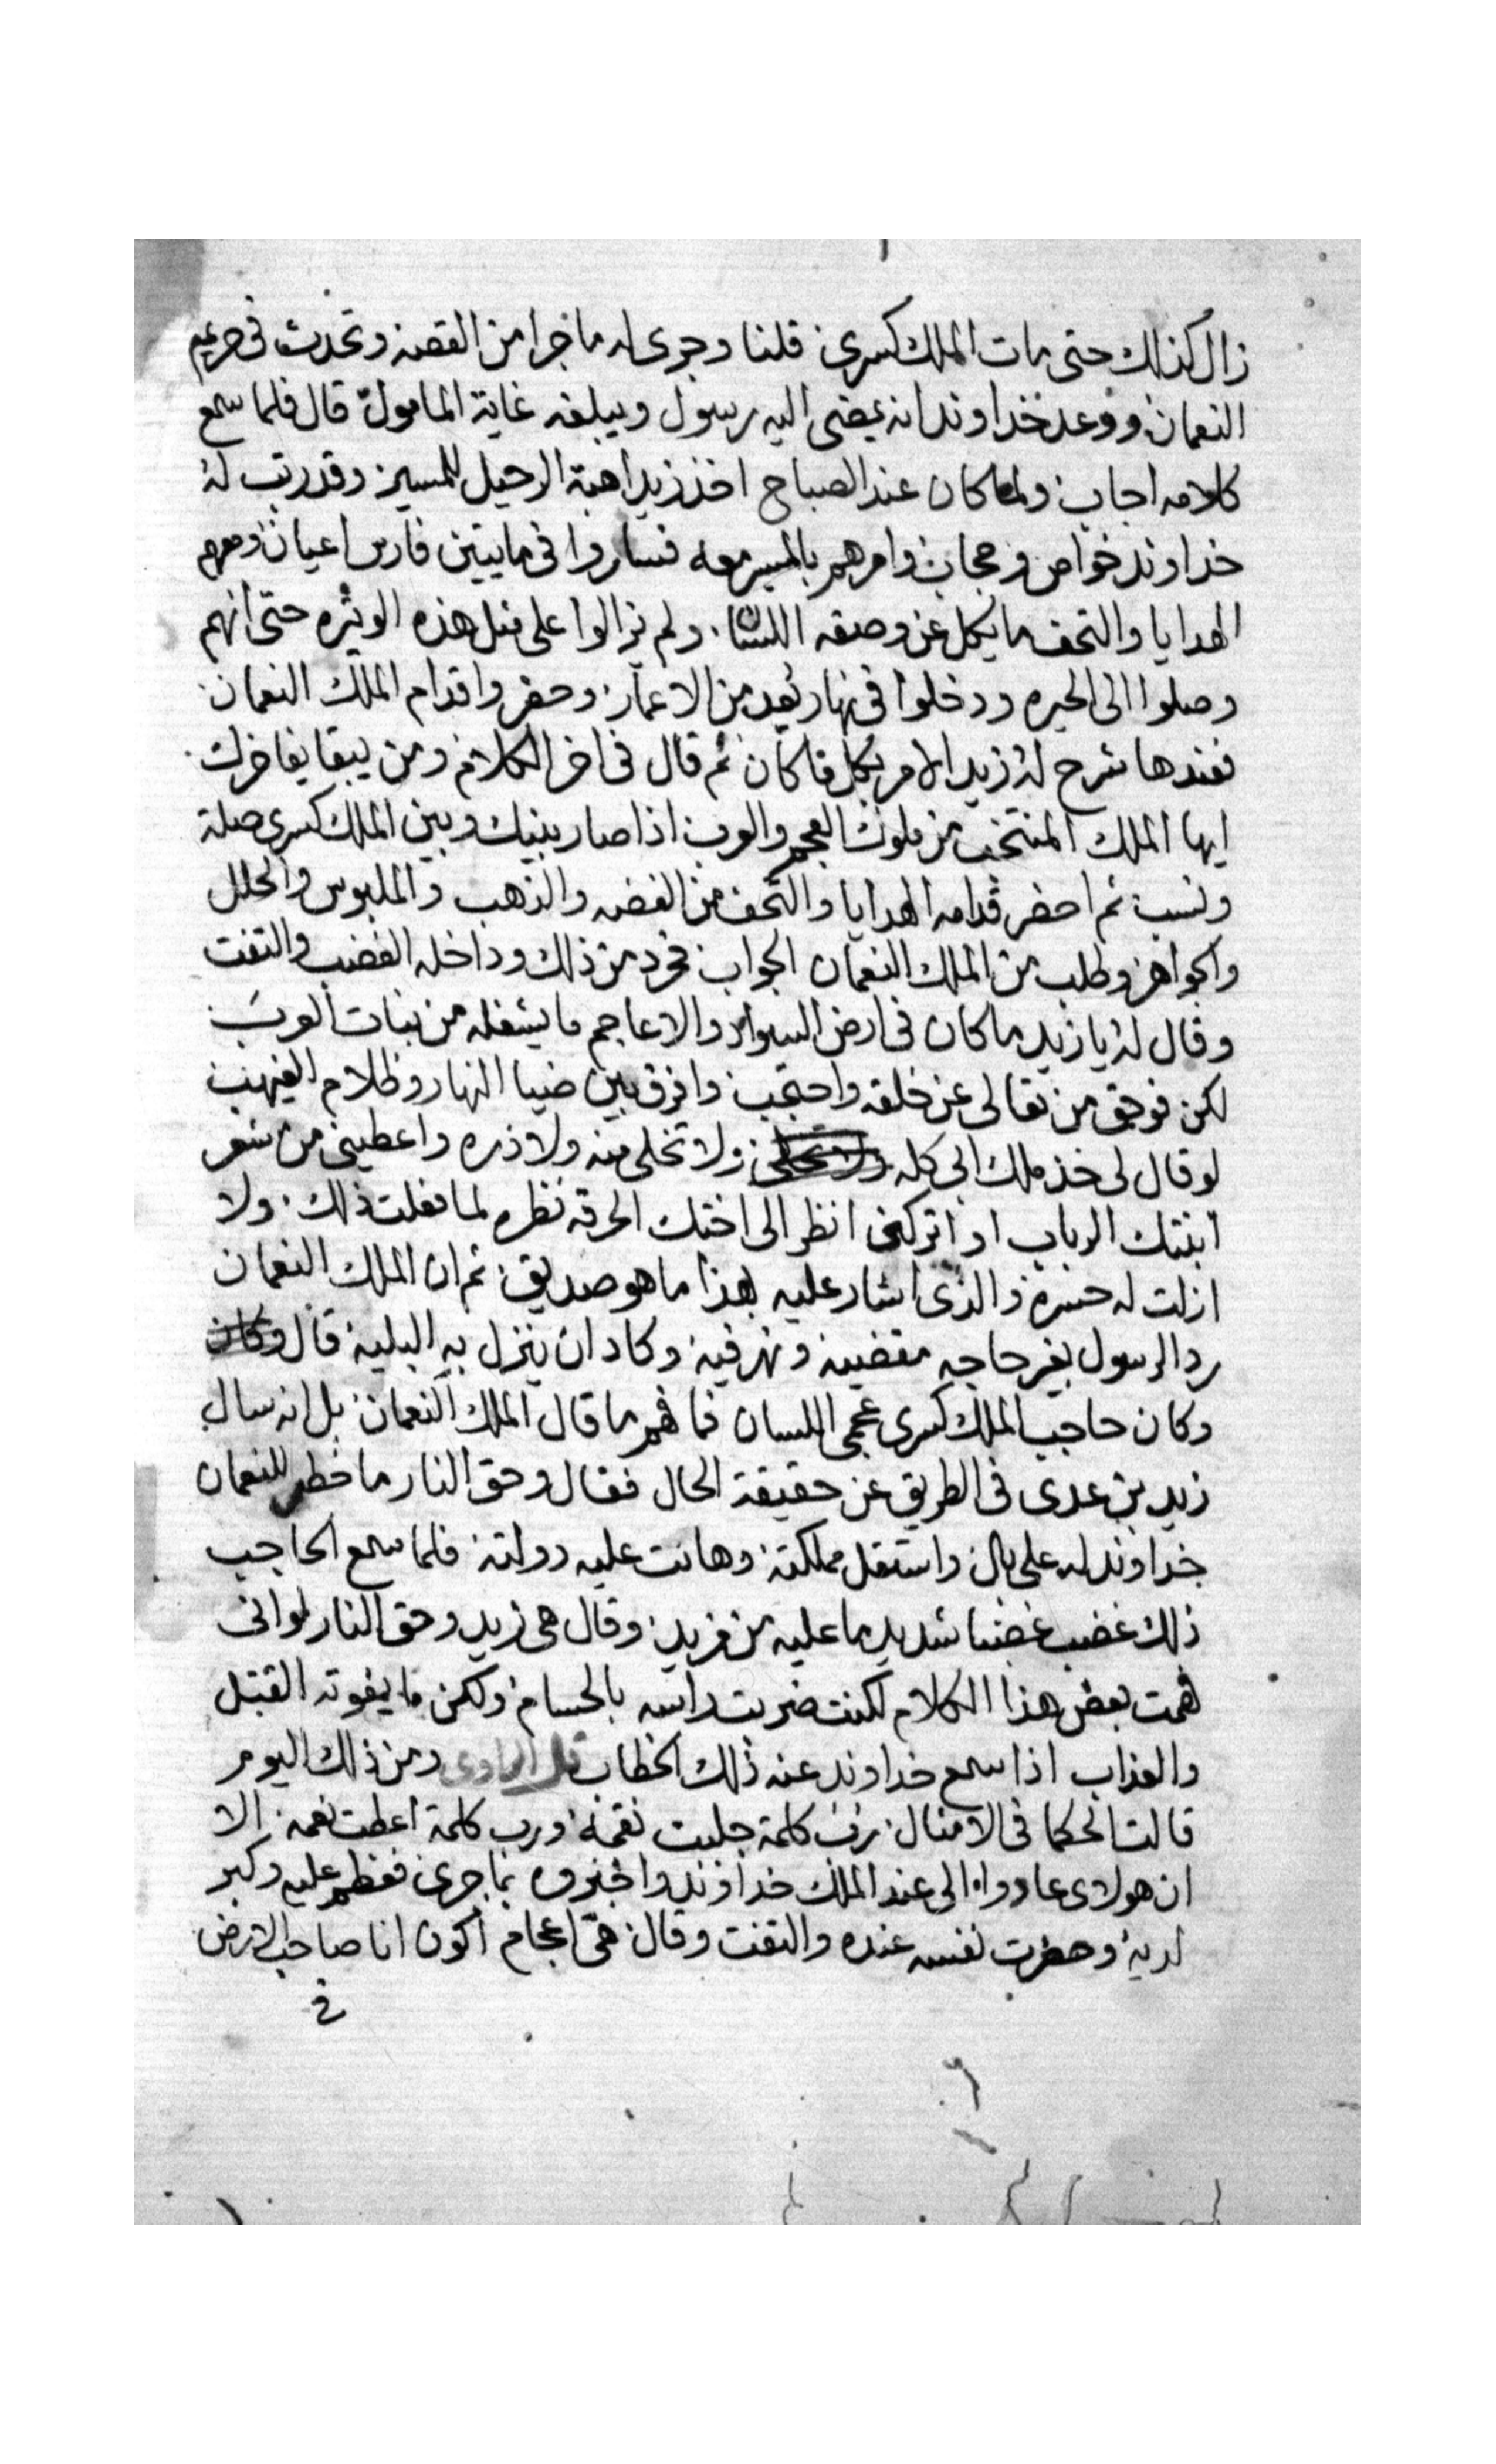 زال كذلك حتى مات الملك كسرى قلنا وجرى له ما جرا من القصه وتحدث فى حريم
النعمان ووعد خداوند انه يمضى اليه رسول ويبلغه غاية المامول قال فلما سمع
كلامه اجاب ولما كان عند الصباح اخذ زيد اهبة الرحيل للمسير وقد رتب له
خداوند خواص وحجاب وامرهم بالمسير معه فساروا فى مايتين فارس اعيان ومعهم
الهدايا والتحف ما يكل عن وصفه اللسان ولم يزالوا على مثل هذه الوثره حتى انهم
وصلوا الى الحيره ودخلوا فى نهار يعد من الاعمار وحضروا قدام الملك النعمان
فعندها شرح له زيد الامر بكل ما كان ثم قال فى اخر الكلام ومن يبقا يفاخرك
ايها الملك المنتخب من ملوك العجم والعرب اذا صار بينك وبين الملك كسرى صلة
ونسب ثم احضر قدامه الهدايا والتحف من الفضه والذهب والملبوس والحلل
والجواهر وطلب من الملك النعمان الجواب فحرد من ذلك وداخله الغضب والتفت
وقال له يا زيد ما كان فى ارض السواد والاعاجم ما يشغله من بنات العرب
لكن فوحق من تعالى عن خلقه واحتجب وافرق بين ضيا النهار وظلام الغيهب
لو قال لى خذ ملك ابى كله ولا تخلى منه ولا ذره واعطينى من شعر
ابنتك الرباب او اتركنى انظر الى اختك الحرقه نظره لما فعلت ذلك ولا
ازلت له حسره والذى اشار عليه بهذا ما هو صديق ثم ان الملك النعمان
رد الرسول بغير حاجه مقضيه ونهر فيه وكاد ان ينزل به البليه قال وكان
وكان حاجب الملك كسرى عجمى اللسان فما فهم ما قال الملك النعمان بل انه سال
زيد بن عدى فى الطريق عن حقيقة الحال فقال وحق النار ما خطر للنعمان
خداوند له على بال واستقل مملكته وهانت عليه دولته فلما سمع الحاجب
ذلك غضب غضبا شديد ما عليه من مزيد وقال هى زيد وحق النار لو انى
فهمت بعض هذا الكلام لكنت ضربت راسه بالحسام ولكن ما يفوته القتل
والعذاب اذا سمع خداوند عنه ذلك الخطاب قال الراوى ومن ذلك اليوم
قالت الحكما فى الامثال رب كلمة جلبت نقمة ورب كلمة اعطت نعمه الا
ان هولاى عادوا الى عند الملك خداوند واخبروه بما جرى فعظم عليه وكبر
لديه وحضرت نفسه عنده والتفت وقال هى اعجام اكون انا صاحب الارض
فى